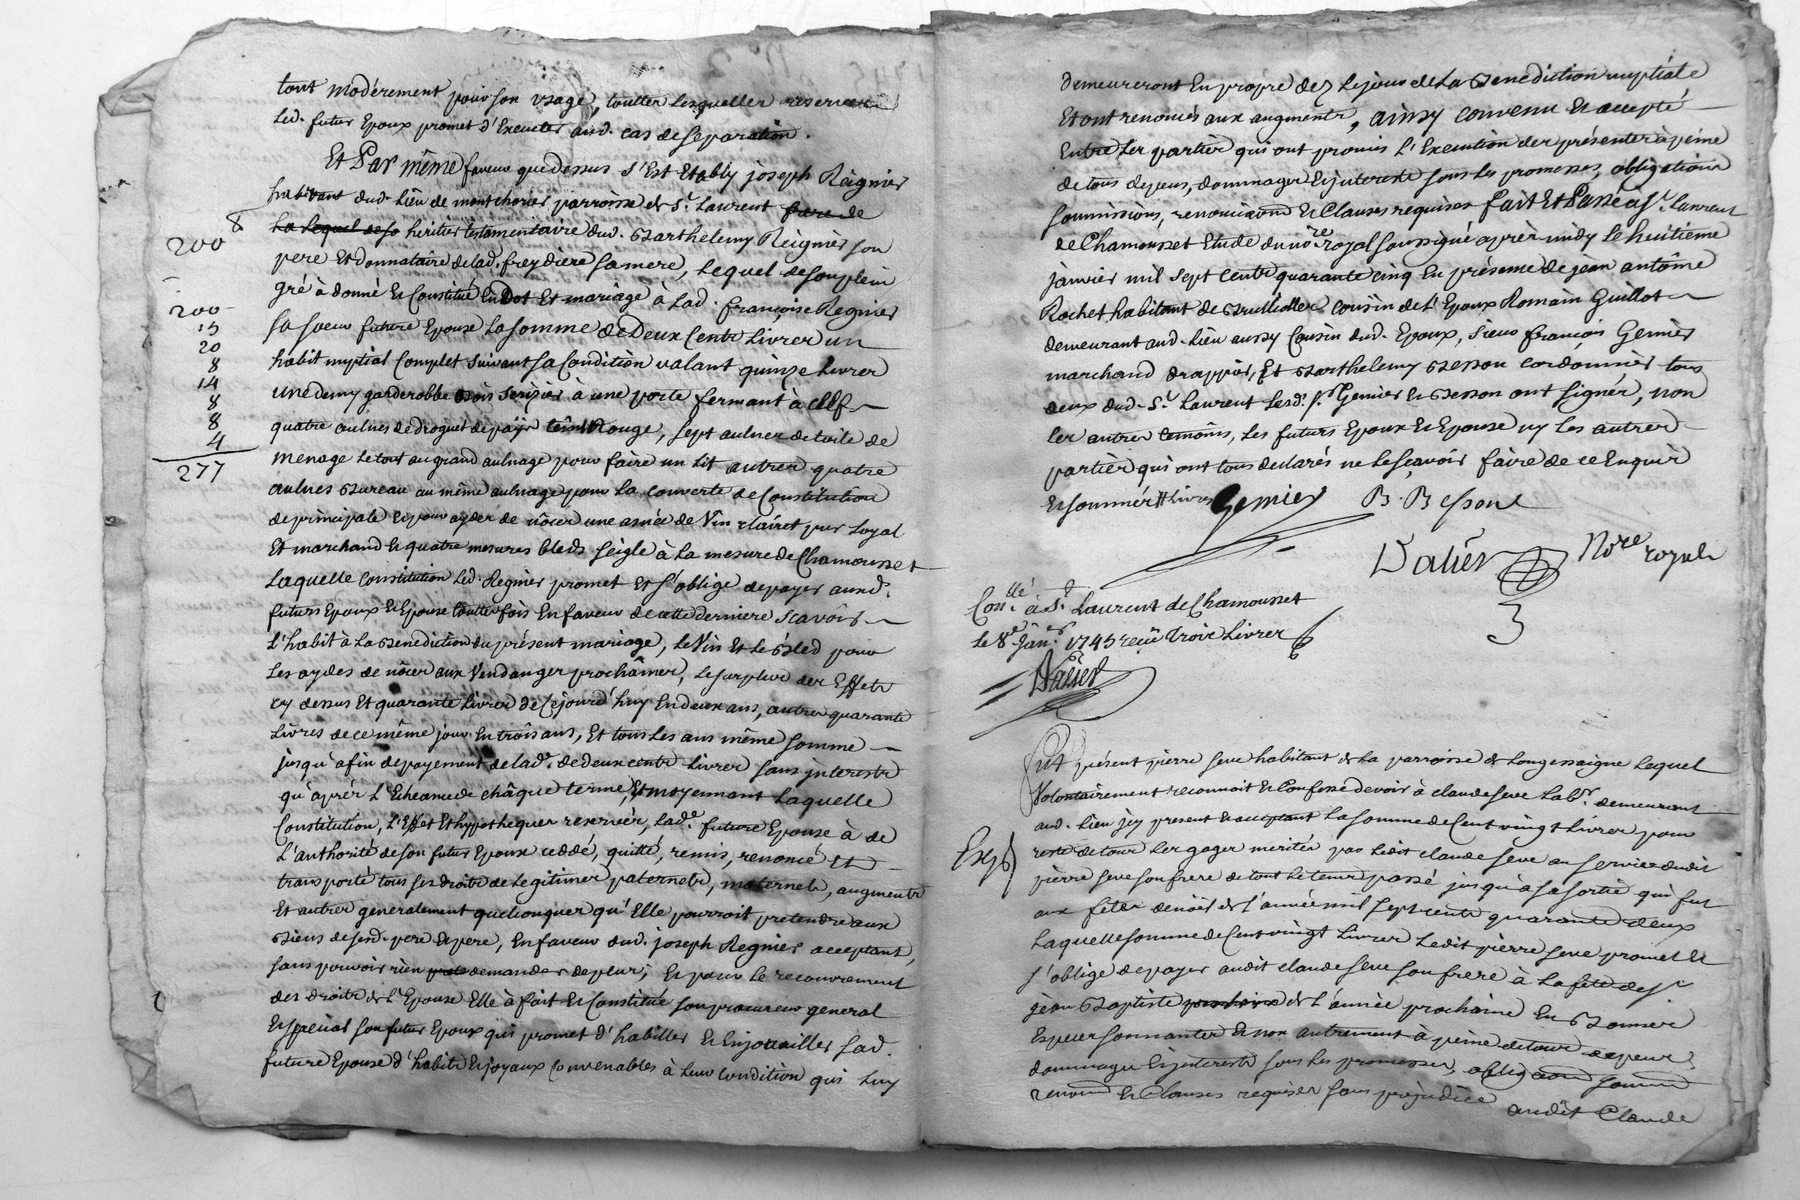 tout modérement pour son usage, toutter lesqueller reserver
led. futur Epoux promet d'Executer aud. cas de separation.
Et Par même faveur que dessus s'est Etably joseph Reignier
habitant dud. lieu de montchorier parroisse de St. Laurent frere de
8
la lequel de so héritier testamentaire dud. Barthelemy Reignier son
200
pere Et donnataire de lad. freydiere sa mere, lequel de son plein
gré à donné Et Constitué En Dot Et mariage à Lad. françoise Regnier
200
sa soeur future Epouse La somme de Deux Cents Livres un
15
habit nuptial complet suivant sa Condition valant quinze Livres
20
une demy garderobbe bois serizier à une porte fermant à Cleff
8
quatre aulnes de droguet de païs teint Rouge, sept aulnes de toile de
14
menage le tout au grand aulnage pour faire un lit autres quatre
8
aulnes Bureau au même aulnage pour la couverte de Constitution
8
de principale Et pour ayder de nôces une asnée de Vin clairet pur Loyal
4
277
Et marchand Et quatre mesures bleds seigle à la mesure de Chamousset
Laquelle constitution Led. Regnier promet Et s'oblige de payer auxd.
futurs Epoux Et Epouse toutter fois En faveur de cette derniere scavoir
L'habit à la Benediction du présent mariage, le Vin Et le Bled pour
les aydes de nôces aux Vendanges prochaines, le surplus des Effets
cy dessus Et quarante Livres de Cejourd'huy En deux ans, autres quarante
Livres de ce même jour En trois ans, Et tous les ans même somme
jusqu'à fin de payement de lad. de deux cents Livres sans interests
qu'après L'Echeance de châque terme, Et moyennant Laquelle
Constitution, L'Effet Et hypotheques reservées, Lade. future Epouse à de
L'authorité de son futur Epoux cedé, quitté, remis, renoncé Et
transporté tous ses droits de Legitimes paternels, maternels, augments
Et autres generalement quelconques qu'Elle pourroit pretendre aux
Biens de sesd. pere Et pere, En faveur dud. joseph Regnier acceptant,
sans pouvoir rien demander de plus, Et pour le recouvrement
des droits de l'Epouse Elle à fait Et Constitué son procureur general
Et special son futur Epoux qui promet d'habiller Et Enjouailler sad.
future Epouse d'habits Et joyaux Convenables à leur condition qui luy
demeureront En propre dez le jour de la Benediction nuptiale
Et ont renoncés aux augments, ainsy convenu Et accepté
Entre les parties qui ont promis l'Execution des présentes à peine
de tous depens, dommages Et interests sous les promesses, obligations
soumissions, renonciaons Et Clauses requises fait Et Passé à St. Laurent
de Chamousset Etude du nore. royal soussigné après midy le huitieme
janvier mil sept cents quarante cinq En présence de jean antoine
Rochet habitant de Brullioller cousin de l'Epoux Romain Guillot
demeurant aud. lieu aussy cousin dud. Epoux, sieur françois Genier
marchand drappier, Et Barthelemy Besson cordonnier tous
deux dud. St. Laurent lesd. sr. Genier Et Besson ont signés, non
les autres temoins, les futurs Epoux Et Epouse ny les autres
parties qui ont tous declarés ne le sçavoir faire de ce Enquis
Et sommés
Genier B. Besson
Dalier Nore royale
Conllé. à St. Laurent de Chamousset
le 8e. Janer. 1745 reçû trois Livres
Dalier
Fut présent pierre seve habitant de la parroisse de Longessaigne lequel
Volontairement reconnoit Et Confesse devoir à claude seve labr. demeurant
aud. lieu jcy present Et acceptant La somme de Cent vingt Livres pour
reste de tous les gages merités par ledit claude seve au service dudit
Exp.
pierre seve son frere de tout le temps passé jusqu'à sa sortie qui fut
aux fêtes de noël de l'année mil sept cents quarante deux
Laquelle somme de Cent vingt Livres Ledit pierre seve promet Et
s'oblige de payer audit claude seve son frere à la fête de St.
jean Baptiste prochaine de l'année prochaine En Bonnes
Especes sonnantes Et non autrement à peine de tous depens,
dommages Et interests sous les promesses, obligaons soumons
renonons Et Clauses requises sans prejudice audit Claude